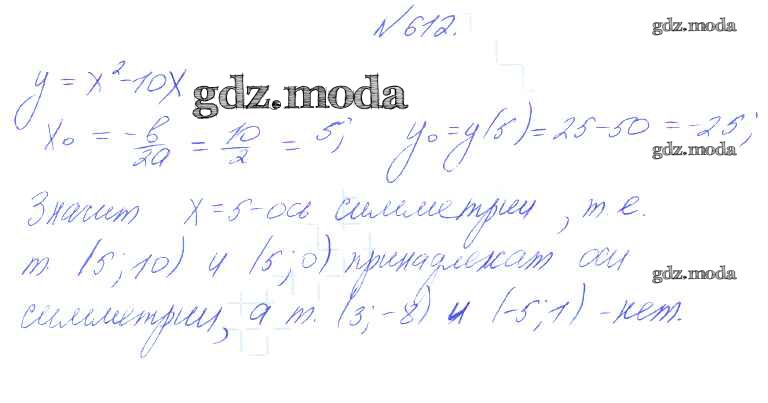 №612. gdz.moda
y = x² - 10x gdz.moda
x₀ = -b/2a = 10/2 = 5; y₀ = y(5) = 25 - 50 = -25;
gdz.moda
Значит x = 5 - ось симметрии, т.е.
т. (5; 10) и (5; 0) принадлежат оси
gdz.moda
симметрии, а т. (3; -8) и (-5; 1) - нет.